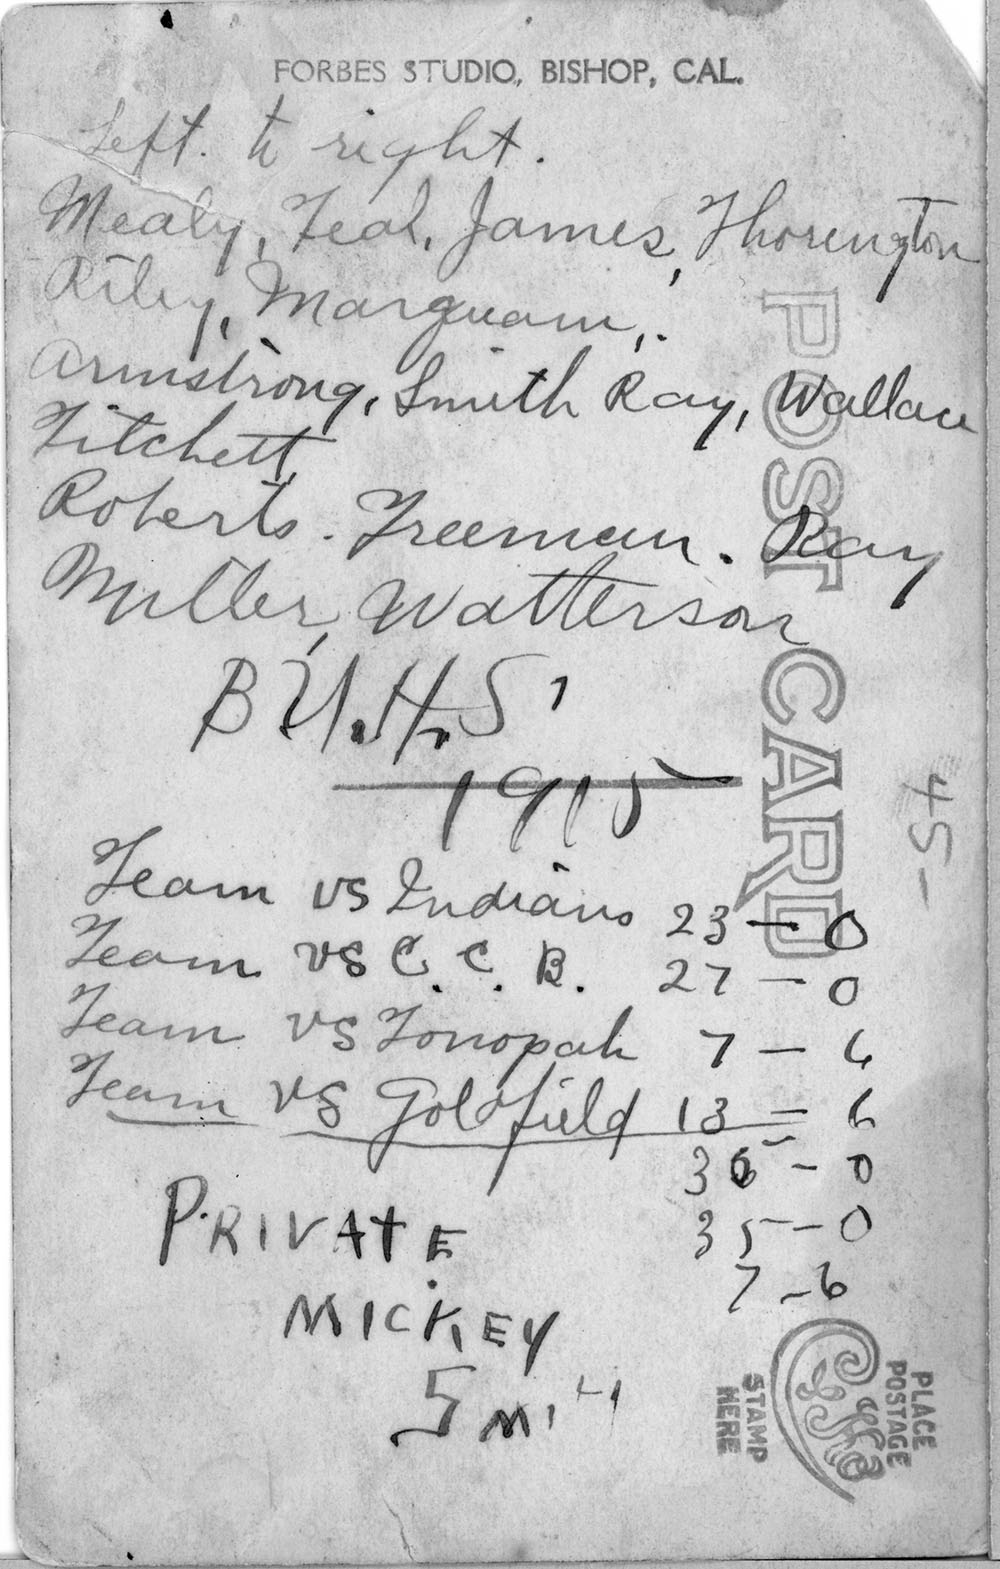 FORBES STUDIO, BISHOP, CAL.
Left. to right.
Mealy, Teal, James, Thorington
Riley, Marguam,.
Armstrong, Smith Ray, Wallace
Fitchett,
Roberts. Freeman. Ray
Miller, Watterson
B U.H.S'
1915
Team vs Indians 23 — 0
Team vs C. C. B. 27 — 0
Team vs Tonopah 7 — 6
Team vs Goldfield 13 = 6
36 - 0
35 - 0
7 - 6
PRIVATE
MICKEY
SMI
POST CARD
45-
PLACE
POSTAGE
STAMP
HERE